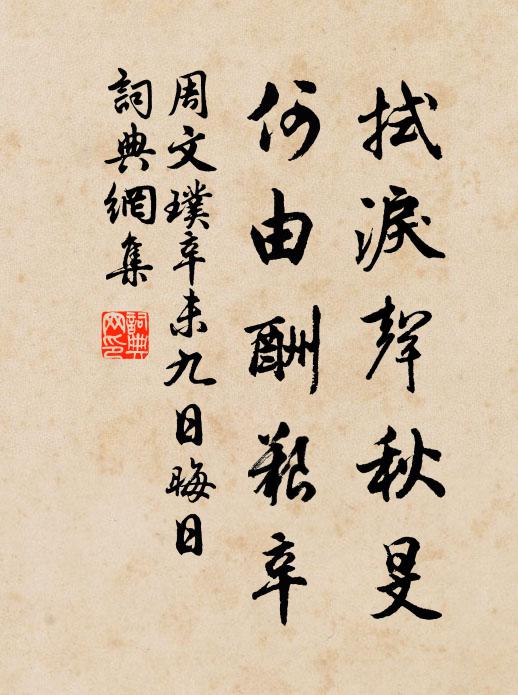 拭淚聲秋旻
何由酬艱辛
周文璞辛未九日晦日
詞典網集
詞典網印